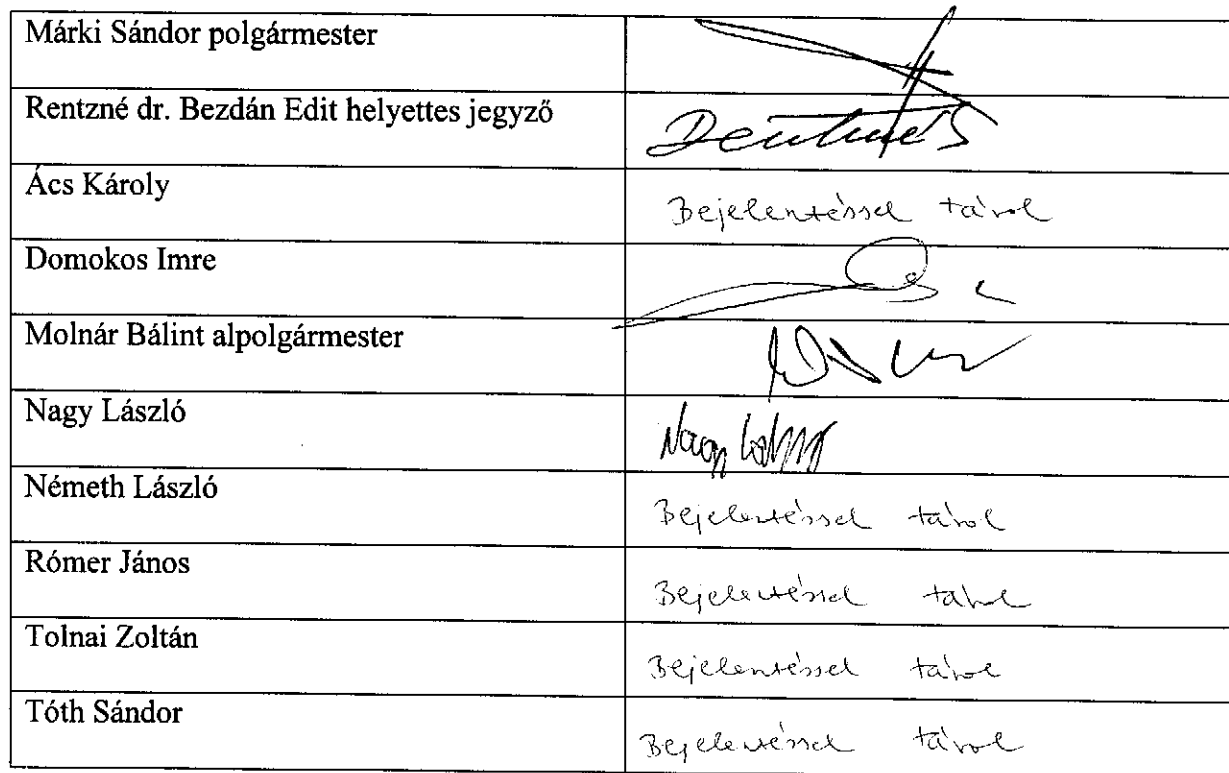 Márki Sándor polgármester
Rentzné dr. Bezdán Edit helyettes jegyző
Ács Károly
Bejelentéssel távol
Domokos Imre
Molnár Bálint alpolgármester
Nagy László
Nagy László
Németh László
Bejelentéssel távol
Rómer János
Bejelentéssel távol
Tolnai Zoltán
Bejelentéssel távol
Tóth Sándor
Bejelentéssel távol